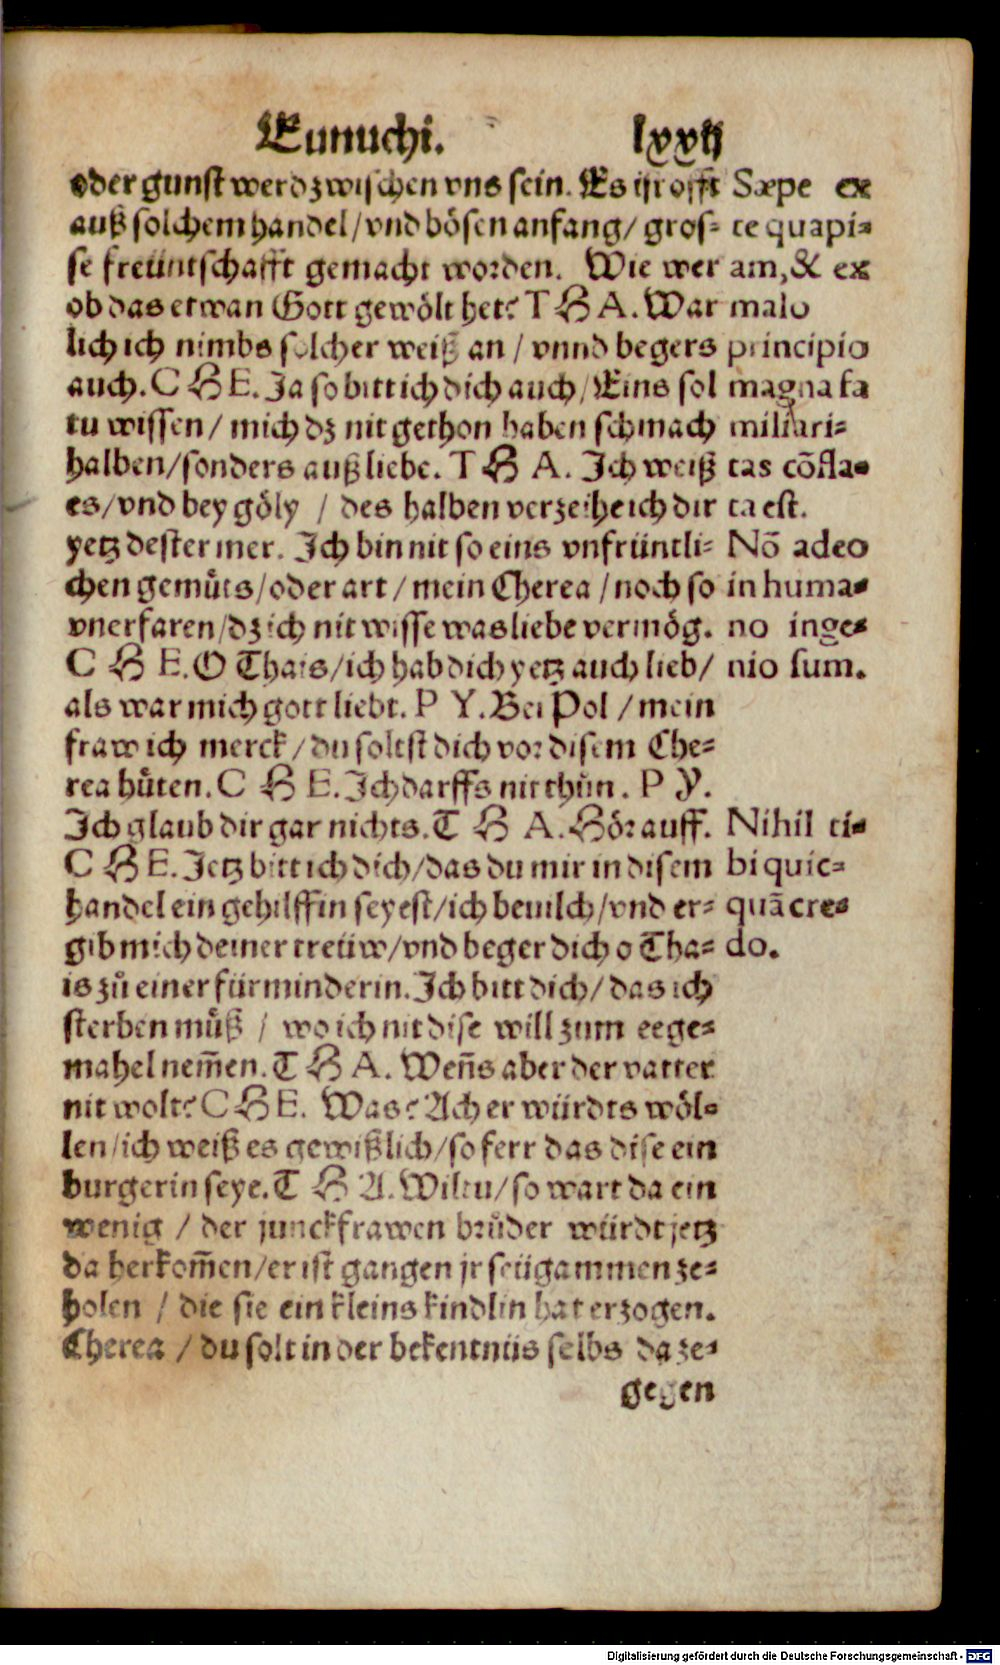 Eunuchi. lxxij
oder gunst werd zwischen vns sein. Es ist offt
auß solchem handel / vnd bösen anfang / gros-
se freüntschafft gemacht worden. Wie wer
ob das etwan Gott gewölt het? T H A. War
lich ich nimbs solcher weiß an / vnnd begers
auch. C H E. Ja so bitt ich dich auch / Eins sol
tu wissen / mich dz nit gethon haben schmach
halben / sonders auß liebe. T H A. Ich weiß
es / vnd bey göly / des halben verzeihe ich dir
yetz dester mer. Ich bin nit so eins vnfrüntli-
chen gemůts / oder art / mein Cherea / noch so
vnerfaren / dz ich nit wisse was liebe vermög.
C H E. O Thais / ich hab dich yetz auch lieb /
als war mich gott liebt. P Y. Bei Pol / mein
fraw ich merck / du soltst dich vor disem Che-
rea hůten. C H E. Ich darffs nit thůn. P Y.
Ich glaub dir gar nichts. T H A. Hör auff.
C H E. Jetz bitt ich dich / das du mir in disem
handel ein gehilffin seyest / ich beuilch / vnd er-
gib mich deiner treüw / vnd beger dich o Tha-
is zů einer fürminderin. Ich bitt dich / das ich
sterben můß / wo ich nit dise will zum eege-
mahel nem̃en. T H A. Weñs aber der vatter
nit wolt? C H E. Was? Ach er würdts wöl-
len / ich weiß es gewißlich / so ferr das dise ein
burgerin seye. T H A. Wiltu / so wart da ein
wenig / der junckfrawen brůder würdt jetz
da herkom̃en / er ist gangen jr seügammen ze-
holen / die sie ein kleins kindlin hat erzogen.
Cherea / du solt in der bekentnüs selbs da ze-
gegen
Sæpe ex
te quapi-
am, & ex
malo
principio
magna fa
miliari-
tas cõfla-
ta est.
Nõ adeo
in huma-
no inge-
nio sum.
Nihil ti-
bi quic-
quã cre-
do.
Digitalisierung gefördert durch die Deutsche Forschungsgemeinschaft - DFG